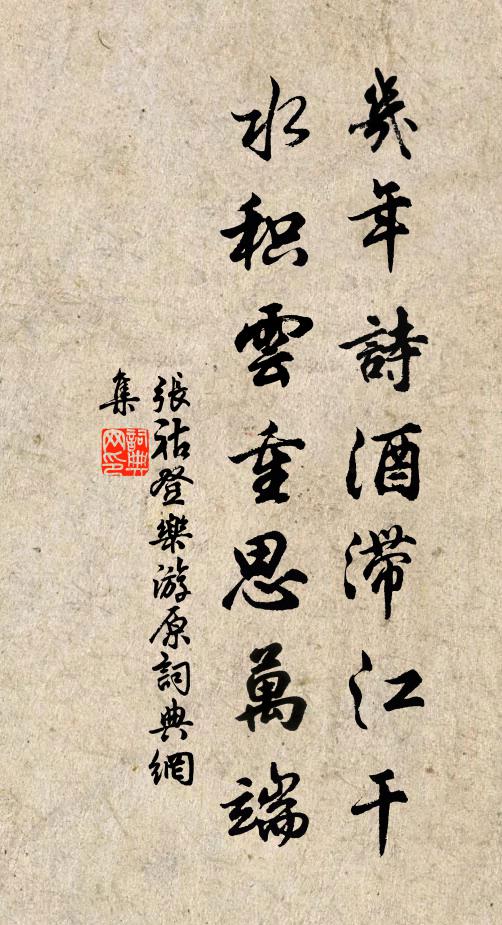 幾年詩酒滯江干
水积雲重思萬端
張祜登樂游原詞典網
集
詞典
网印